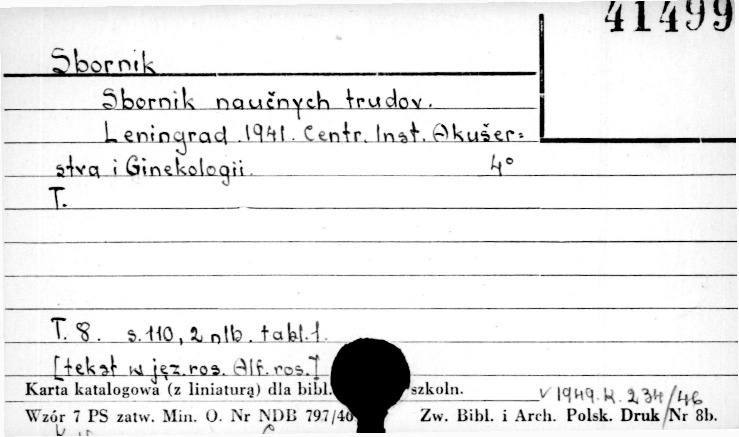 41499
Sbornik
Sbornik naučnych trudov.
Leningrad 1941. Centr. Inst. Akušer=
stva i Ginekologii. 4°
T.
T. 8. s. 110, 2 nlb. tabl. 1.
[tekst w jęz. ros. Alf. ros.]
Karta katalogowa (z liniaturą) dla bibl. szkoln.
V 1949. K. 234/46
Wzór 7 PS zatw. Min. O. Nr NDB 797/46 Zw. Bibl. i Arch. Polsk. Druk Nr 8b.